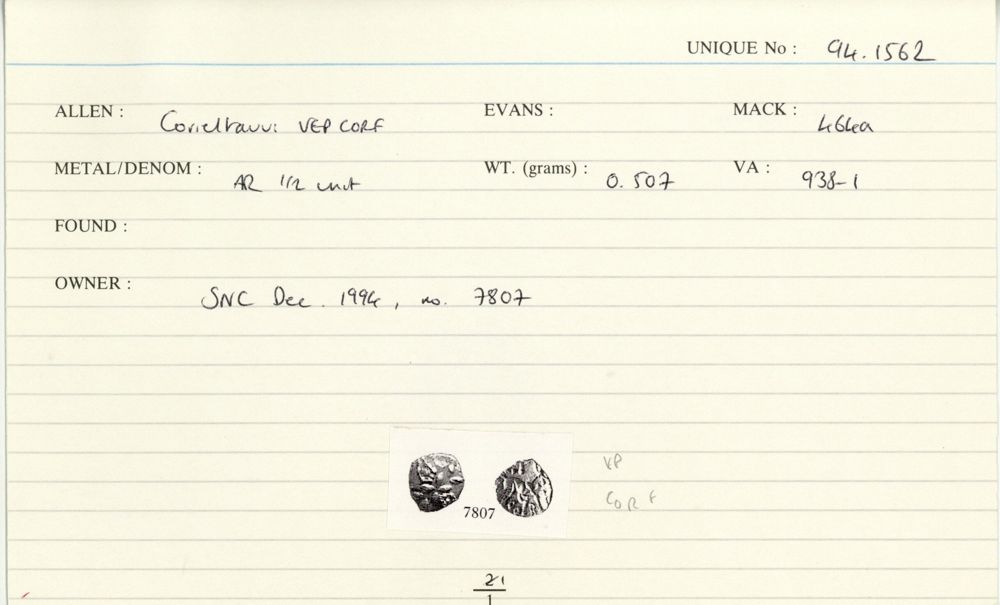 UNIQUE No : 94.1562
ALLEN : Corieltauvi VEP CORF EVANS : MACK : 464a
METAL/DENOM : AR 1/2 unit WT. (grams) : 0.507 VA : 938-1
FOUND :
OWNER : SNC Dec. 1994, no. 7807
7807
VP
COR F
21
1